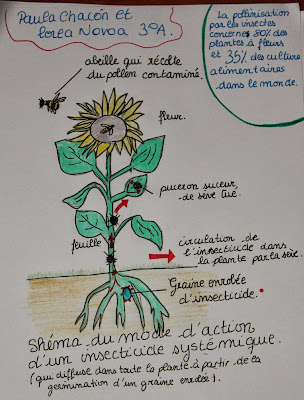 Paula Chacón et
Lorea Novoa 3ºA.
La pollinisation
par les insectes
concerne 80% des
plantes à fleurs
et 35% des culture
alimentaires
dans le monde.
abeille qui récolte
du pollen contaminé.
fleur.
puceron suceur
de sève tué.
feuille
circulation de
l'insecticide dans
la plante par la sève.
Graine enrobée
d'insecticide.
Shéma du mode d'action
d'un insecticide systémique.
(qui diffuse dans toute la plante à partir de la
germination d'un graine enrobée).